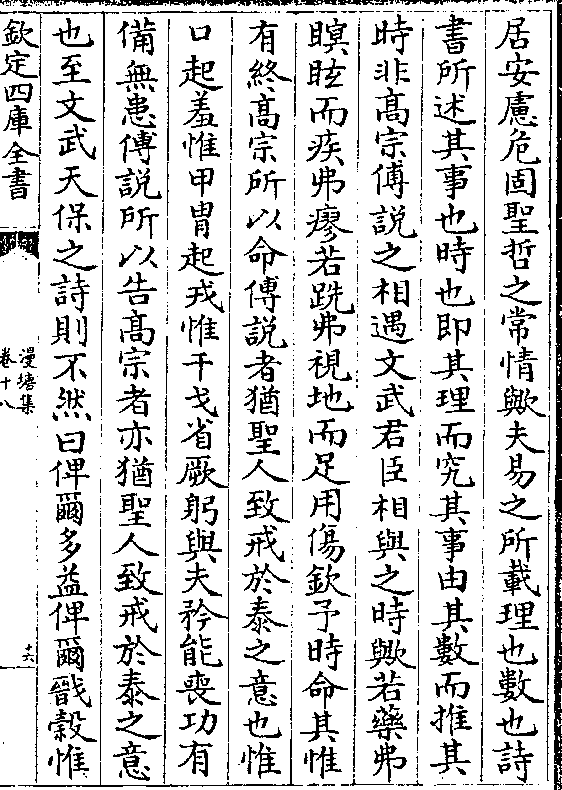 居安慮危固聖哲之常情歟夫易之所載理也數也詩
書所述其事也時也即其理而究其事由其數而推其
時非髙宗傅説之相遇文武君臣相與之時歟若藥弗
瞑眩而疾弗瘳若跣弗視地而足用傷欽予時命其惟
有終髙宗所以命傅説者猶聖人致戒於泰之意也惟
口起羞惟甲胄起戎惟干戈省厥躬與夫矜能喪功有
備無患傅説所以告髙宗者亦猶聖人致戒於泰之意
也至文武天保之詩則不然曰俾爾多益俾爾戩糓惟
欽定四庫全書
漫塘集
卷十八
十六